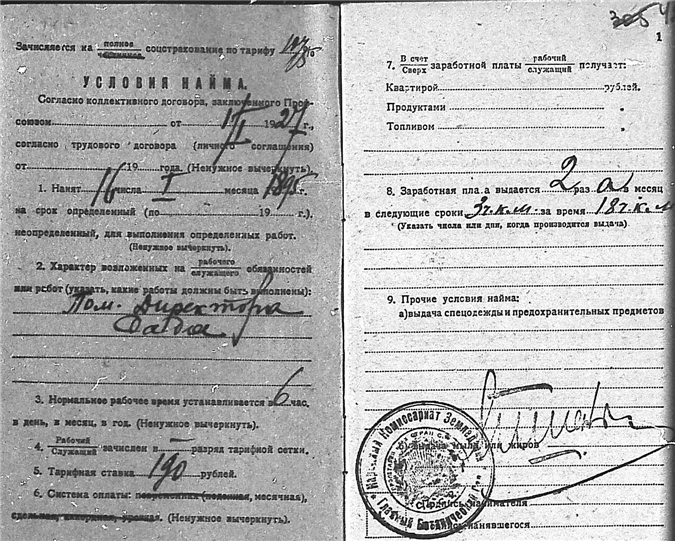 Зачисляется на полное соцстрахование по тарифу 10%
УСЛОВИЯ НАЙМА.
Согласно коллективного договора, заключенного Проф-
союзом от 1/I 1927 г.,
согласно трудового договора (личного соглашения)
от 19 года. (Ненужное вычеркнуть).
1. Нанят 16 числа I месяца 1895 г.
на срок определенный (по 19 г.).
неопределенный, для выполнения определенных работ.
(Ненужное вычеркнуть).
2. Характер возложенных на рабочего служащего обязанностей
или работ (указать, какие работы должны быть выполнены):
Пом. Директора
Сада
3. Нормальное рабочее время устанавливается в 6 час.
в день, в месяц, в год. (Ненужное вычеркнуть).
4. Рабочий Служащий зачислен в — разряд тарифной сетки.
5. Тарифная ставка 190 рублей.
6. Система оплаты: повременная (поденная, месячная),
сдельная, аккордная, урочная. (Ненужное вычеркнуть).
305
1
7. В счет Сверх заработной платы рабочий служащий получает:
Квартирой рублей.
Продуктами "
Топливом "
8. Заработная плата выдается 2 раза в месяц
в следующие сроки 3 ч.к.м. за время 18 ч.к.м
(Указать числа или дни, когда производится выдача).
9. Прочие условия найма:
а) выдача спецодежды и предохранительных предметов
б) выдача мыла или жиров
Народный Комиссариат Земледелия
Главный Ботанический
Подпись нанимателя
нанявшегося